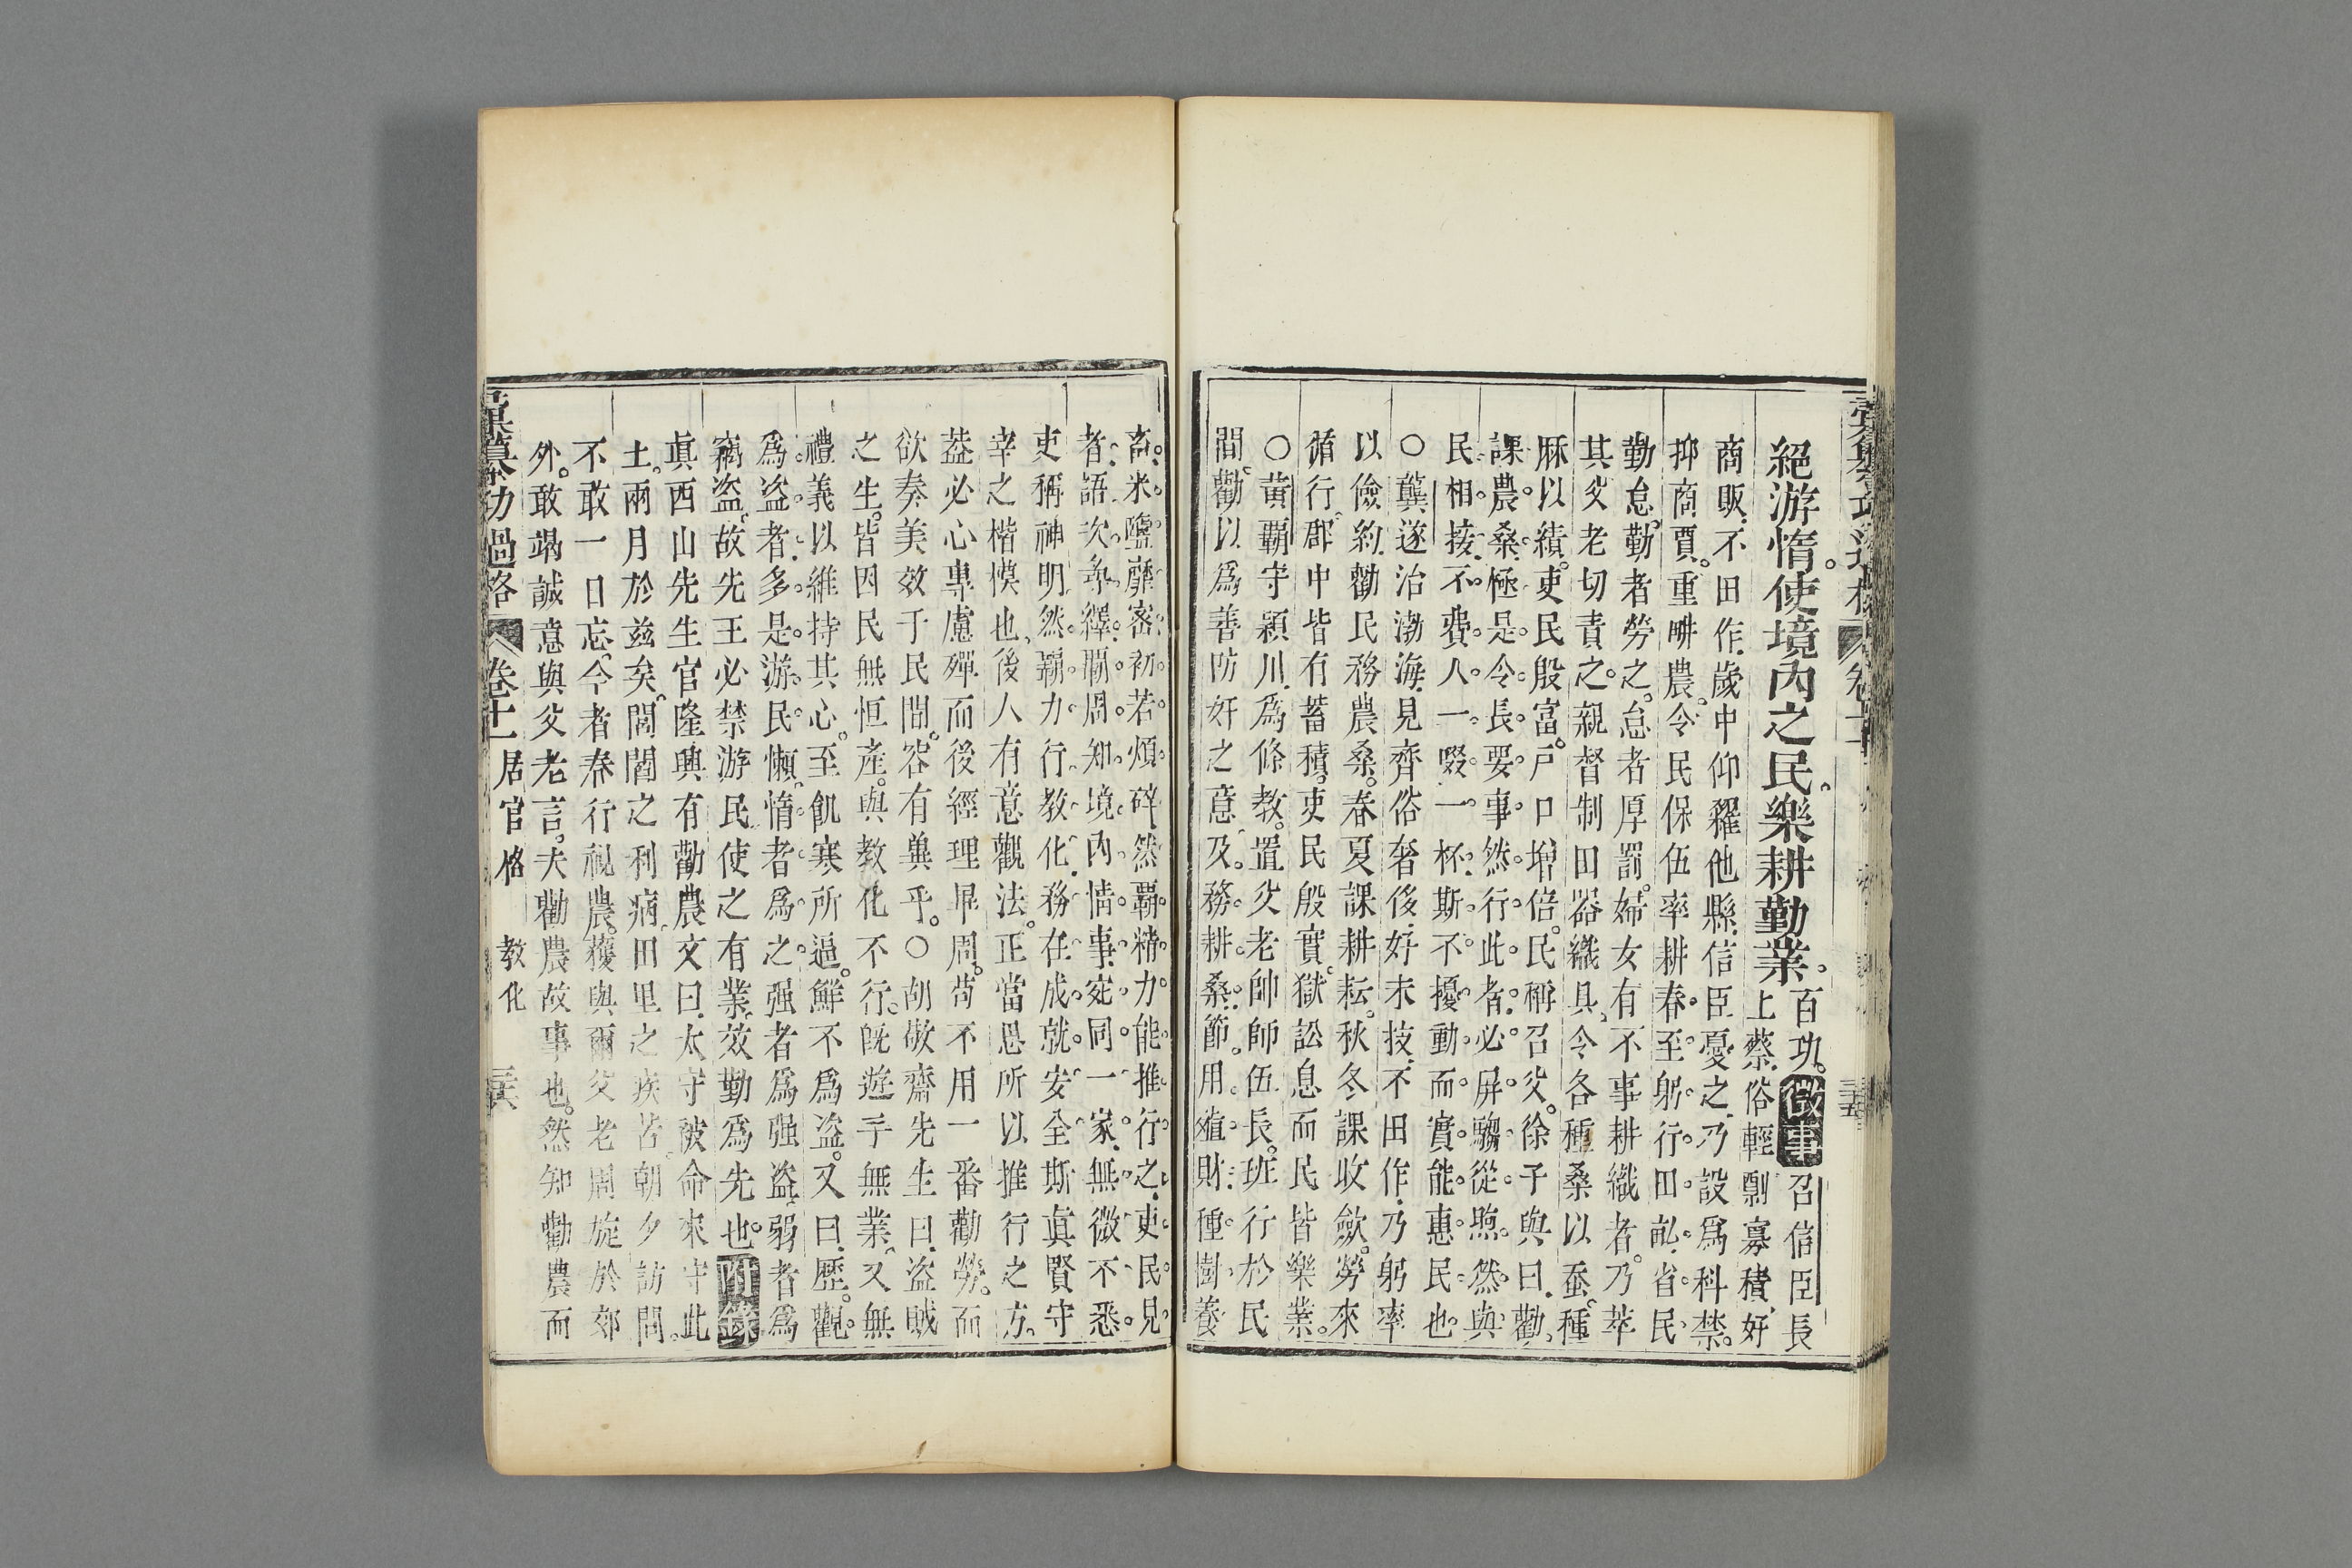 絕游惰。使境內之民。樂耕勤業。百功。徵事召信臣長
上蔡。俗輕剽寡積。好
商販。不田作。歲中仰糴他縣。信臣憂之。乃設爲科禁。
抑商賈。重畊農。令民保伍率耕。春至。躬行田畝。省民
勤怠。勤者勞之。怠者厚罰。婦女有不事耕織者。乃萃
其父老切責之。親督制田器織具。令各種桑以蚕。種
麻以績。吏民殷富。戶口增倍。民稱召父。徐子與曰。勸
課農桑。極是令長要事。然行此者。必屏騶從。煦然與
民相接。不費人一啜一杯。斯不擾動而實能惠民也。
○龔遂治渤海。見齊俗奢侈。好末技。不田作。乃躬率
以儉約。勸民務農桑。春夏課耕耘。秋冬課收歛。勞來
循行。郡中皆有蓄積。吏民殷實。獄訟息而民皆樂業。
○黃霸守潁川。爲條教。置父老帥師伍長。班行於民
間。勸以爲善防奸之意。及務耕桑。節用殖財。種樹養
畜。米鹽靡密。初若煩碎。然霸精力能推行之。吏民見
者。語次尋繹。關周知境內情事。宛同一家。無微不悉。
吏稱神明。然霸力行教化。務在成就安全。斯眞賢守
宰之楷模也。後人有意觀法。正當思所以推行之方。
葢必心專慮殫而後經理畢周。苟不用一番勸勞。而
欲奏美效于民間。容有兾乎。○胡敬齋先生曰。盜賊
之生。皆因民無恒產。與教化不行。旣遊手無業。又無
禮義以維持其心。至飢寒所逼。鮮不爲盜。又曰。歷觀。
爲盜者。多是游民懶惰者爲之。强者爲强盜。弱者爲
竊盜。故先王必禁游民使之有業。效勤爲先也。附錄
眞西山先生官隆興有勸農文曰。太守被命來守此
土。兩月於兹矣。閭閻之利病。田里之疾苦。朝夕訪問。
不敢一日忘。今者春行視農。蕿與爾父老周旋於郊
外。敢竭誠意與父老言。夫勸農故事也。然知勸農而
彙纂功過格 卷十一 居官格 教化 三六